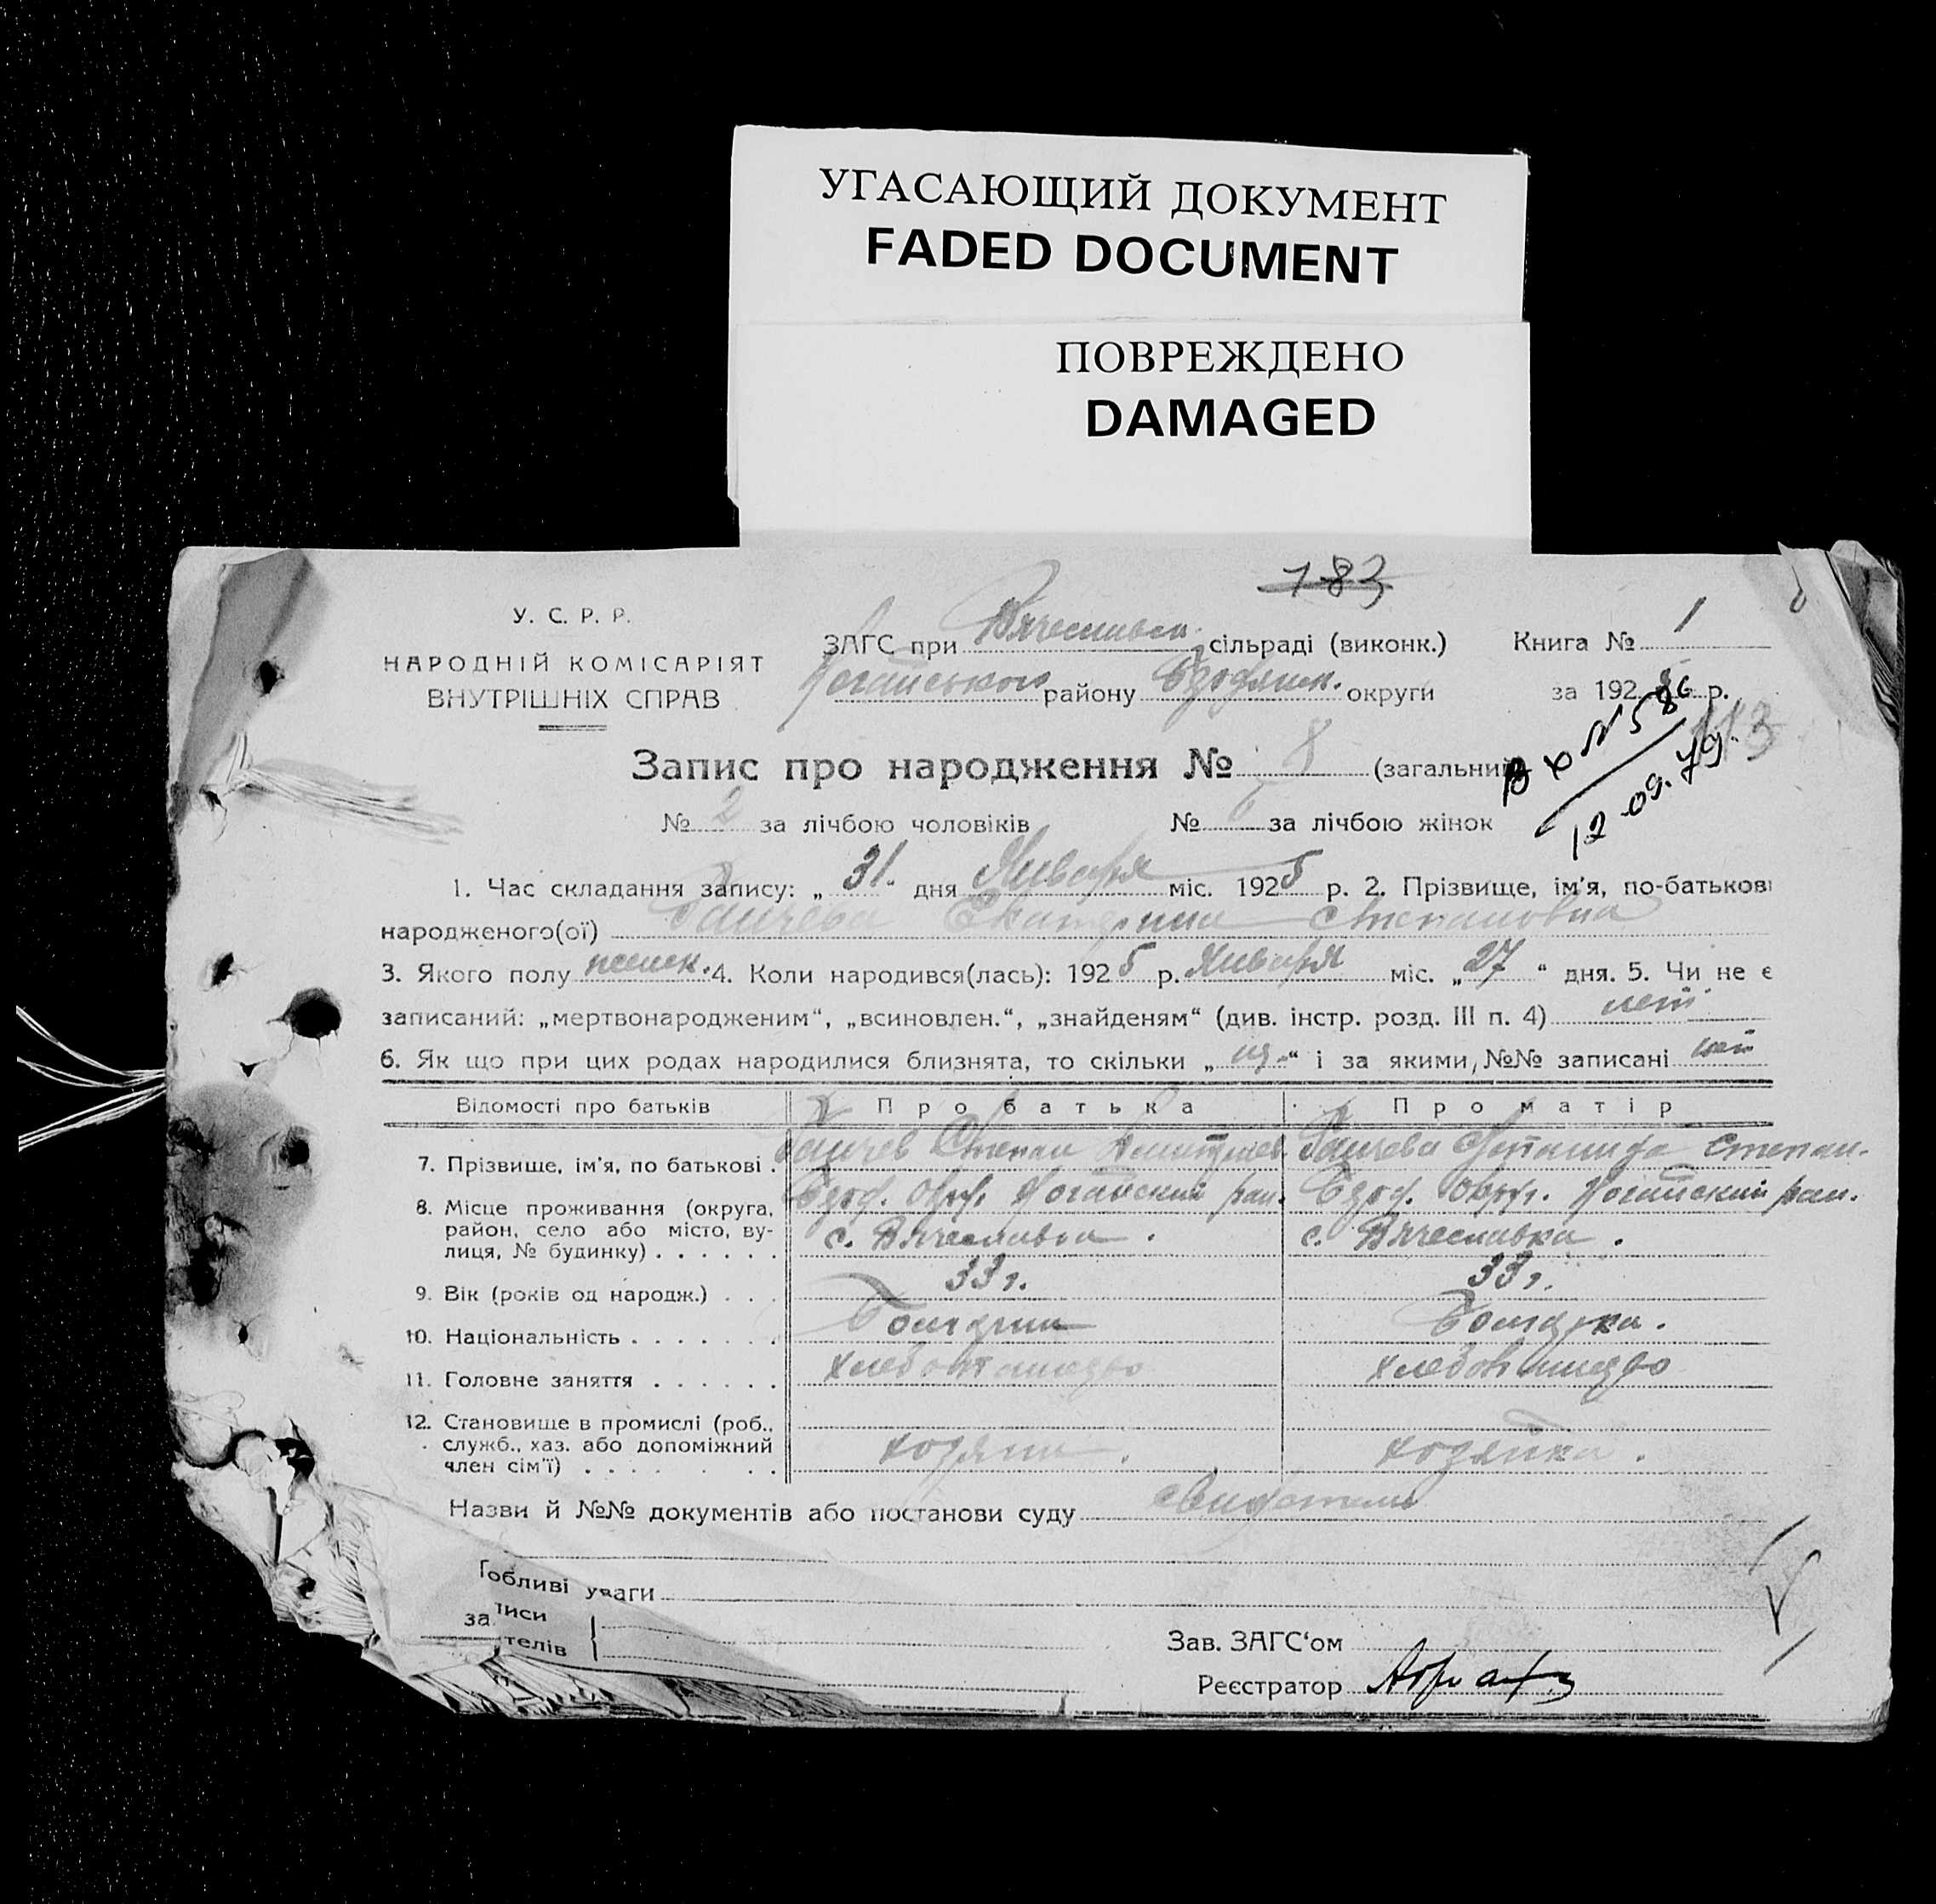 УГАСАЮЩИЙ ДОКУМЕНТ
FADED DOCUMENT
ПОВРЕЖДЕНО
DAMAGED
183
У. С. Р. Р.
НАРОДНІЙ КОМІСАРІЯТ
ВНУТРІШНІХ СПРАВ
ЗАГС при сільраді (виконк.) Книга № 1
Ногайського району округи за 192 р.
Запис про народження № 8 (загальний
12.09.79
№ 2 за лічбою чоловіків № 6 за лічбою жінок
1. Час складання запису: „31“ дня Января міс. 1925 р. 2. Прізвище, ім'я, по-батькові
народженого(ої) Екатерина Степановна
3. Якого полу женск. 4. Коли народився(лась): 1925 р. Января міс. „27“ дня. 5. Чи не є
записаний: „мертвонародженим“, „всиновлен.“, „знайденям“ (див. інстр. розд. III п. 4) нет
6. Як що при цих родах народилися близнята, то скільки „ “ і за якими, №№ записані нет
Відомості про батьків Про батька Про матір
7. Прізвище, ім'я, по батькові . Степан Степан.
8. Місце проживання (округа, Окр. Ногайский рай. Окр. Ногайский рай.
район, село або місто, ву- с. Вячеславка . с. Вячеславка .
лиця, № будинку) . . . . . .
9. Вік (років од народж.) . . . 33 г. 33 г.
10. Національність . . . . . . . Болгарин Болгарка.
11. Головне заняття . . . . . . хлебопашество хлебопашество
12. Становище в промислі (роб.,
служб., хаз. або допоміжний хозяин . хозяйка .
член сім'ї) . . . . . . .
Назви й №№ документів або постанови суду
обливі уваги
за писи
телів
Зав. ЗАГС'ом
Реєстратор